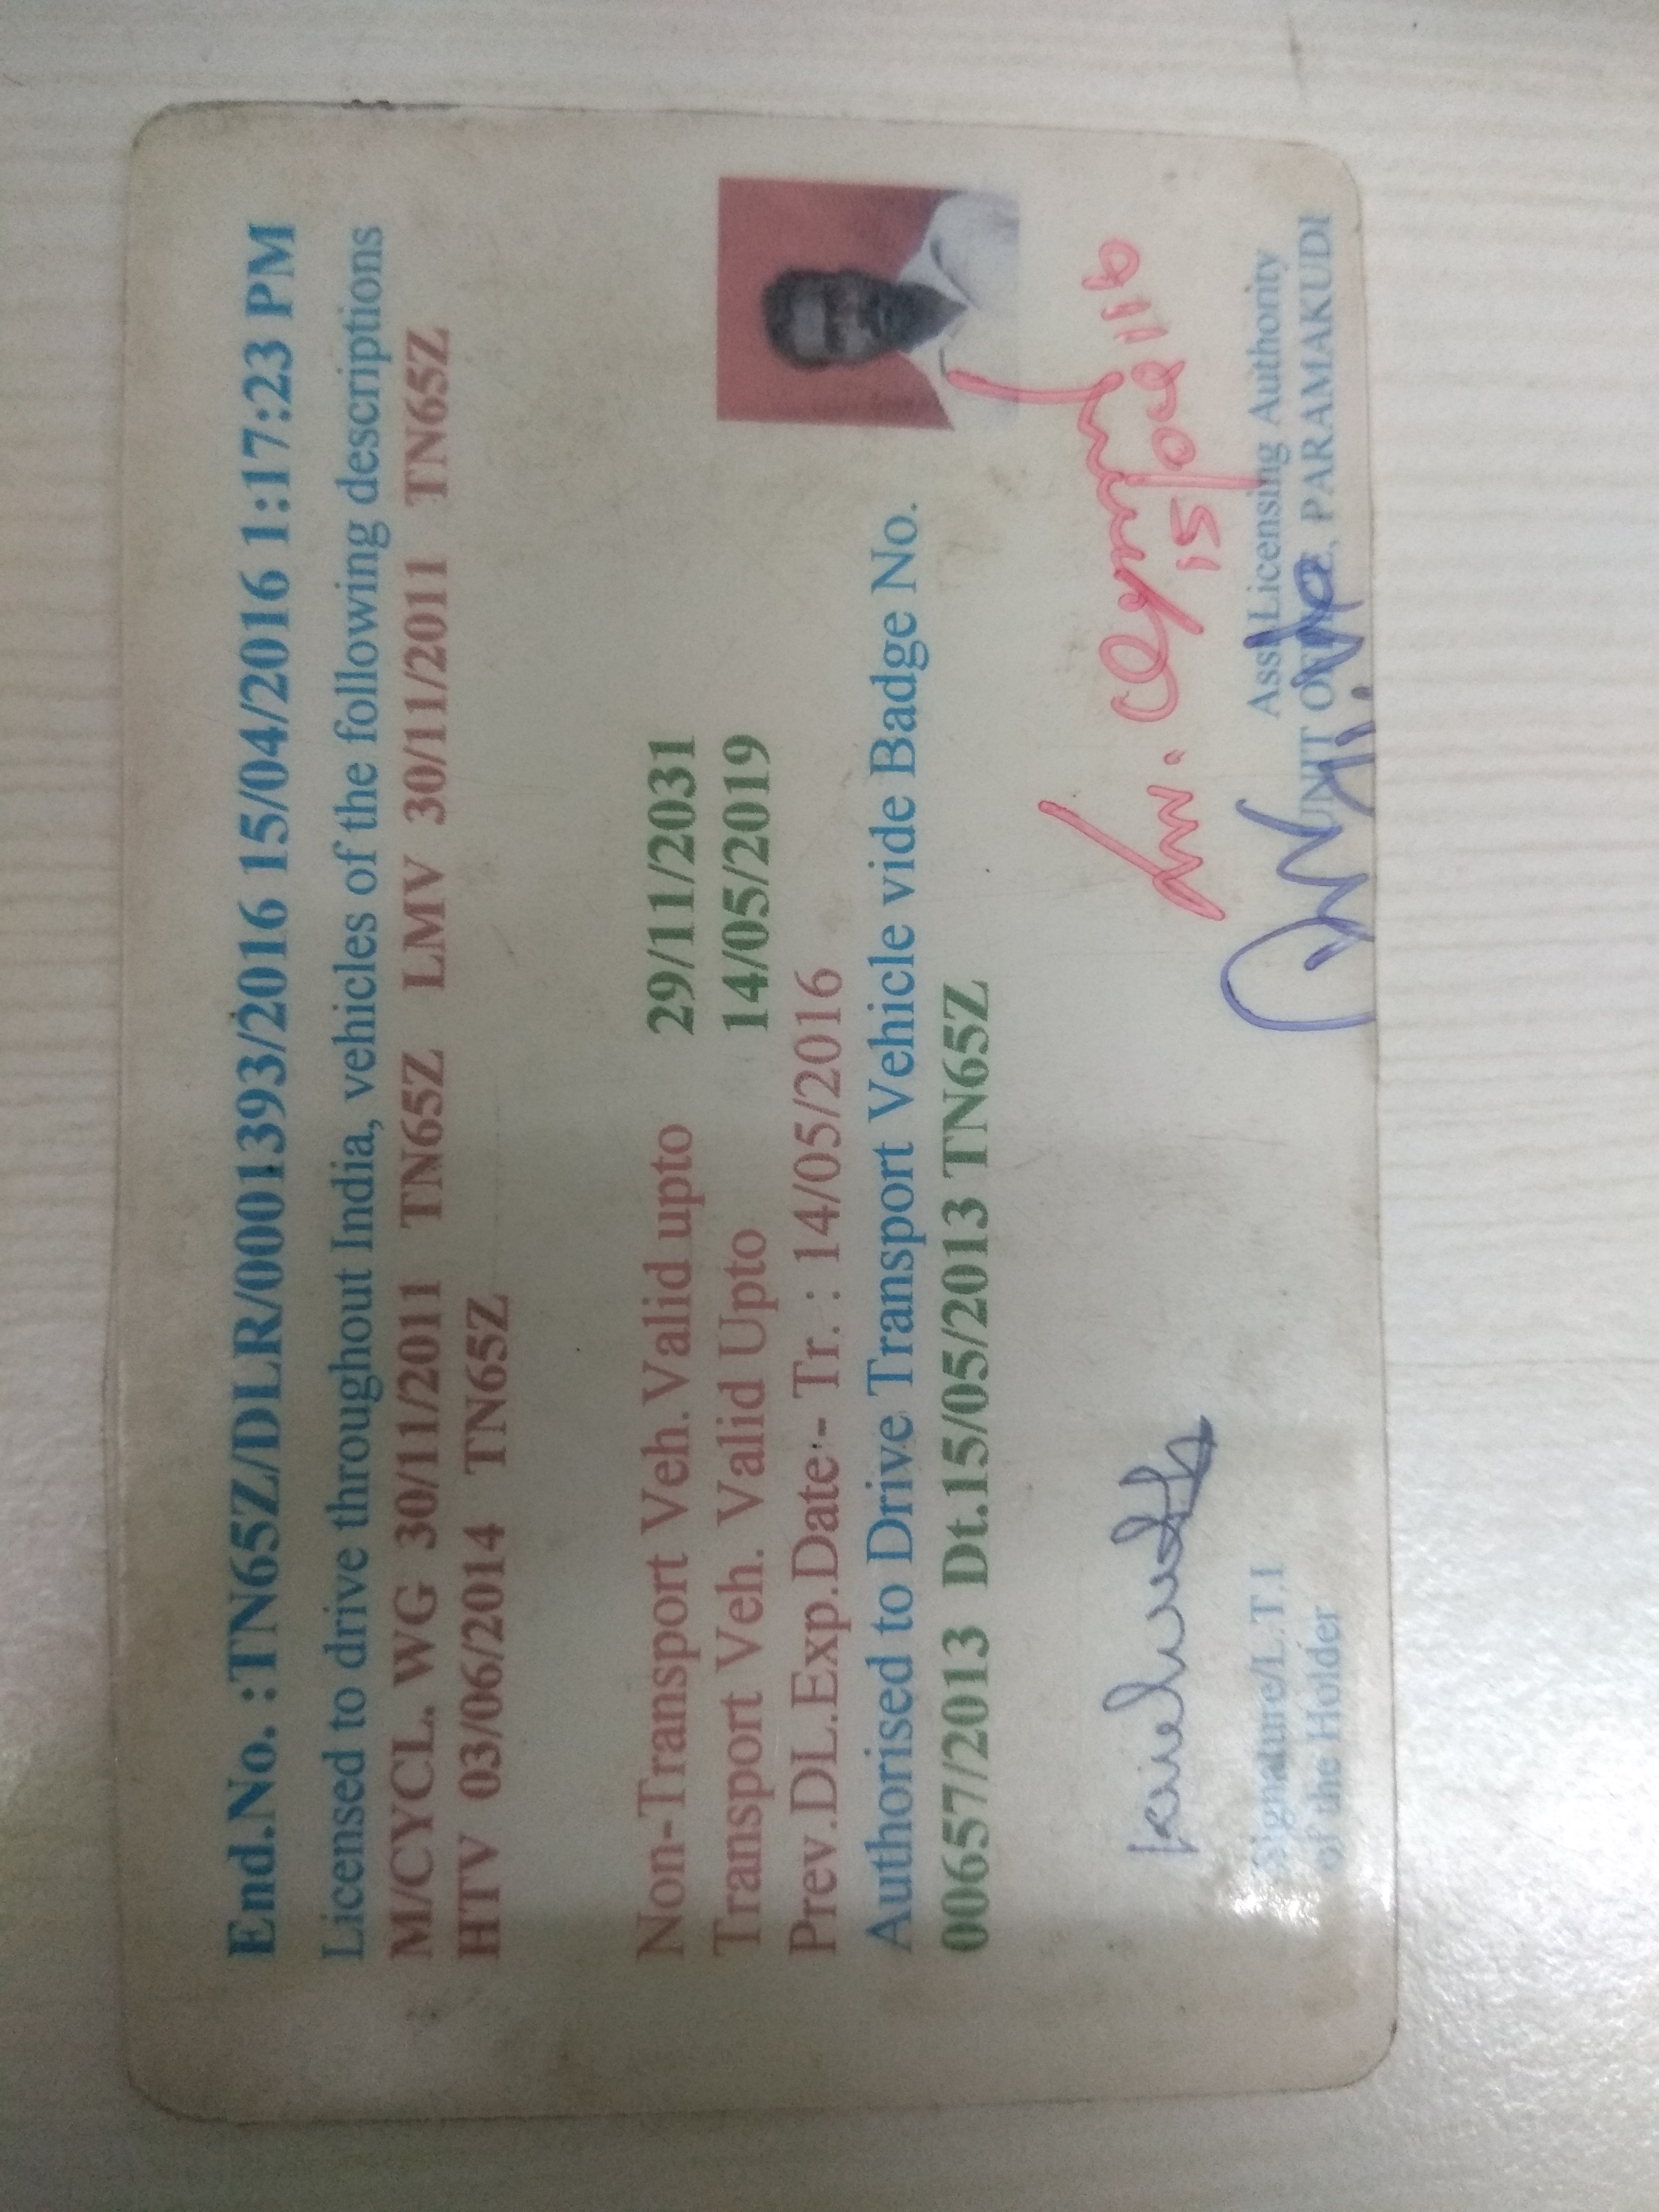 End.No. :TN65Z/DLR/0001393/2016 15/04/2016 1:17:23 PM
Licensed to drive throughout India, vehicles of the following descriptions
M/CYCL. WG 30/11/2011 TN65Z LMV 30/11/2011 TN65Z
HTV 03/06/2014 TN65Z
Non-Transport Veh.Valid upto 29/11/2031
Transport Veh. Valid Upto 14/05/2019
Prev.DL.Exp.Date:- Tr. : 14/05/2016
Authorised to Drive Transport Vehicle vide Badge No.
00657/2013 Dt.15/05/2013 TN65Z
Signature/L.T.I
of the Holder
Licensing Authority
UNIT PARAMAKUDI